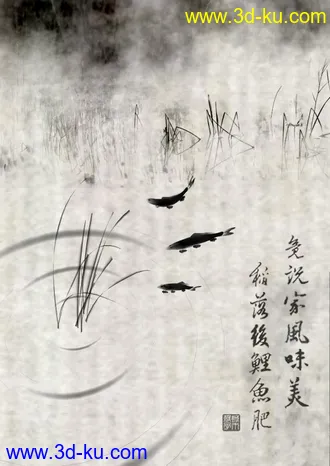 www.3d-ku.com
竟説家風味美
稻落後鯉魚肥
www.3d-ku.com